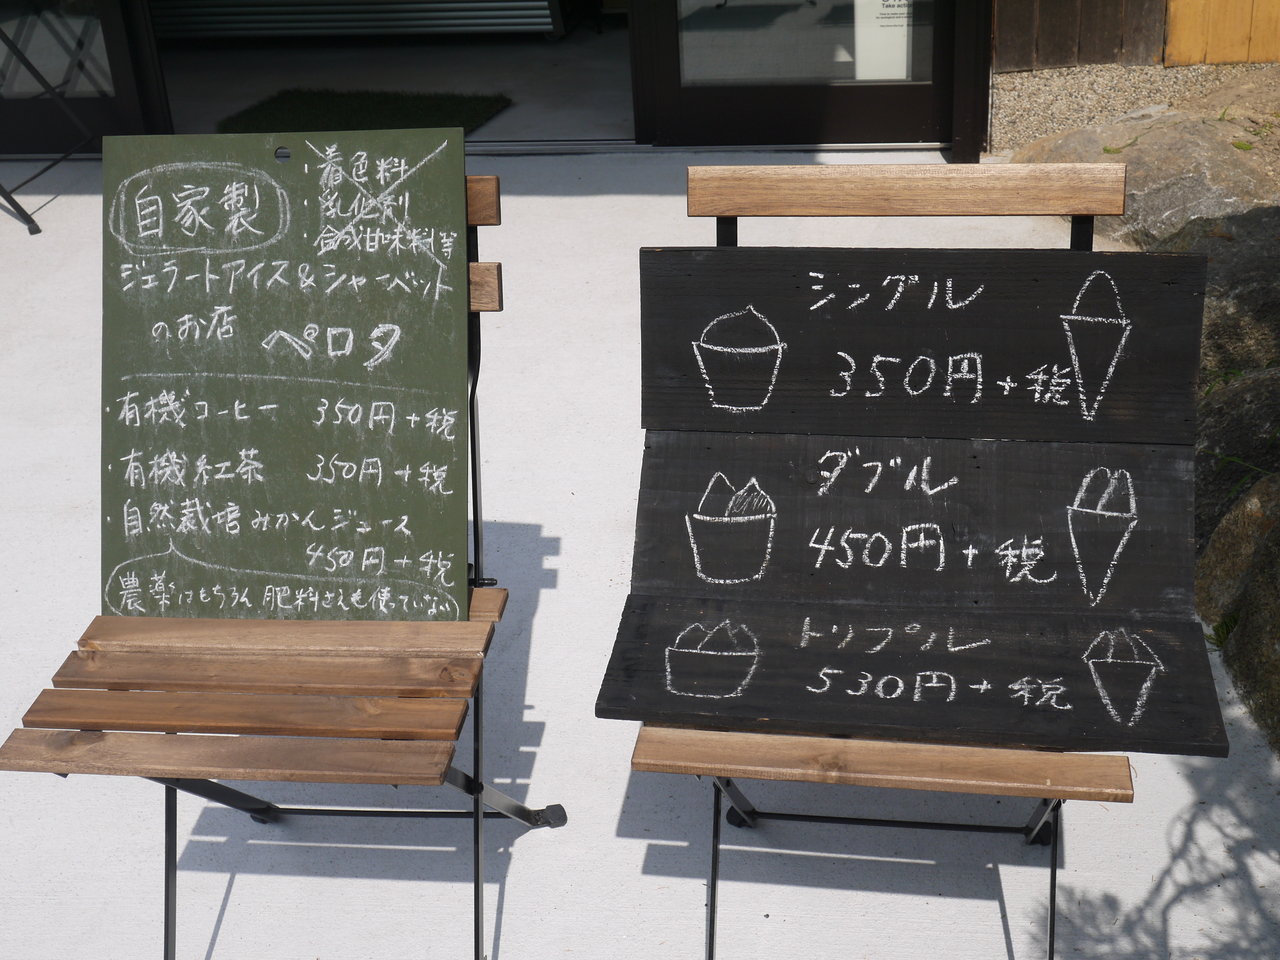 自家製
・着色料
・乳化剤
・合成甘味料等
ジェラートアイス&シャーベット
のお店 ペロタ
・有機コーヒー 350円+税
・有機紅茶 350円+税
・自然栽培みかんジュース
450円+税
農薬はもちろん肥料さえも使っていない
シングル
350円+税
ダブル
450円+税
トリプル
530円+税
Take action